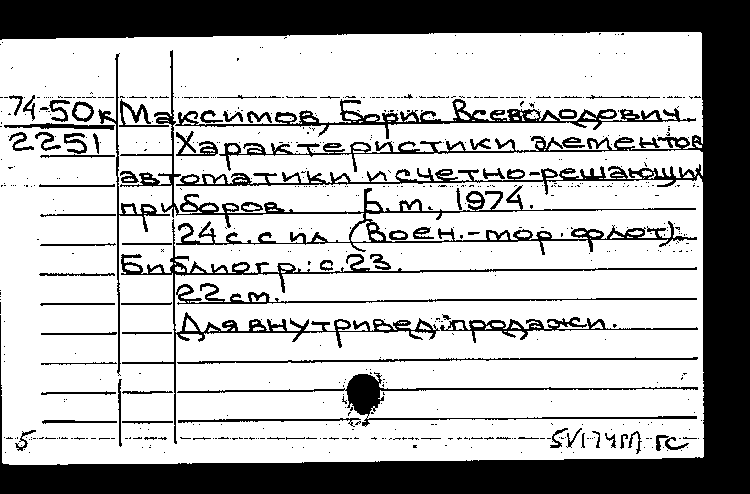 74-50к Максимов, Борис Всеволодович.
2251 Характеристики элементов
автоматики и счетно-решающих
приборов. Б.м., 1974.
24 с. с ил. (Воен.-мор. флот).
Библиогр.: с. 23.
22 см.
Для внутривед. продажи.
5 5VI74 ГС